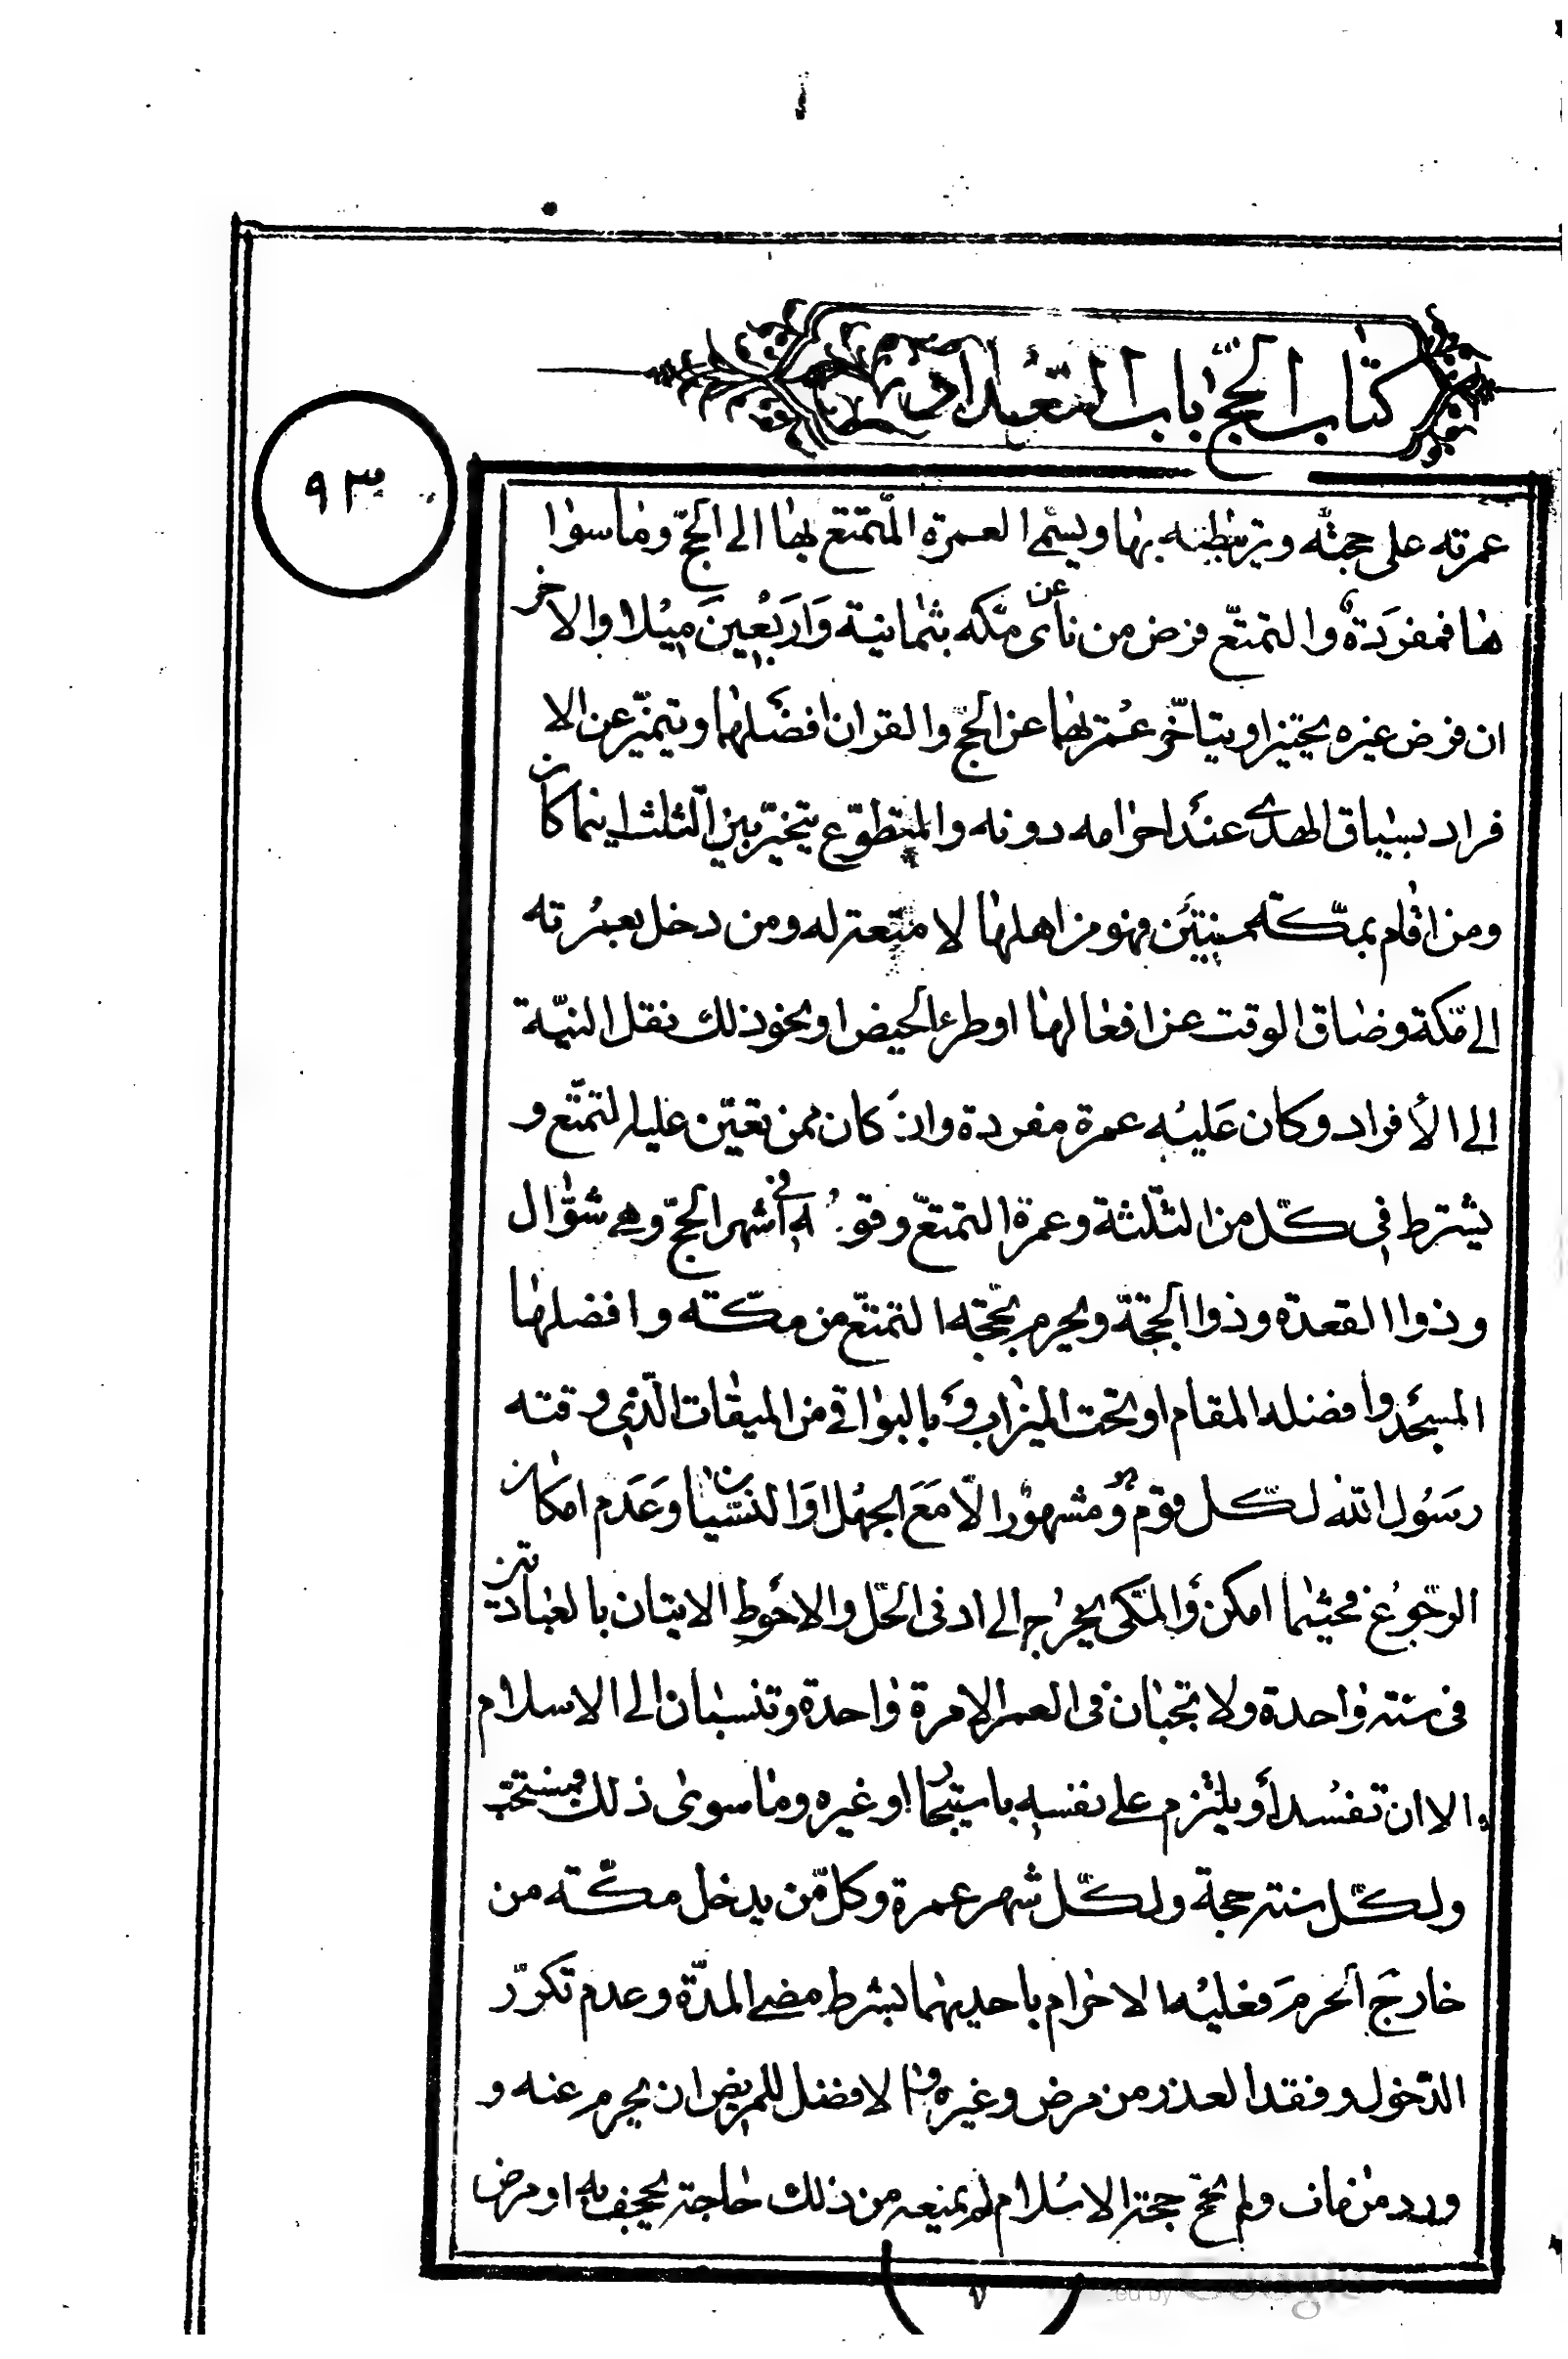 كتاب الحج باب التعداد
٩٣
عمرته على حجته ويرتبطنه بها ويسمى العمرة المتمتع بها الى الحج وما سوا
ها فمفردة والتمتع فرض من نأى عن مكه بثمانية واربعين ميلا والاخر
ان فرض غيره يحتيزا ويتاخر عمرتهما عن الحج والقران افضلهما ويتميز عن الا
فراد بسياق الهدى عند احرامه دونه والمتطوع يتخير بين الثلث اينما كان
ومن اقام بمكة سنتين فهو من اهلها لا متعة له ومن دخل بعمرته
الى مكة وضاق الوقت عن افعالها او طرء الحيض او نحو ذلك نقل النية
الى الأفراد وكان عليه عمرة مفردة وان كان ممن تعين عليه التمتع و
يشترط فى كل من الثلثة وعمرة التمتع وقوعه فى اشهر الحج وهى شوال
وذوا القعدة وذوا الحجة ويحرم بحجة التمتع من مكة وافضلها
المسجد وافضله المقام او تحت الميزاب و بالبواقى من الميقات الذى وقته
رسول الله لكل قوم و مشهورا الا مع الجهل او النسيان وعدم امكان
الرجوع فحيثما امكن والمكى يخرج الى ادنى الحل والاحوط الاتيان بالعبادتين
فى سنة واحدة ولا تجبان فى العمر الا مرة واحدة وتنسبان الى الاسلام
الا ان تفسد أو يلتزم على نفسه باستيجار او غيره وما سوى ذلك فيستحب
ولكل سنة حجة ولكل شهر عمرة وكل من يدخل مكة من
خارج الحرم فعليه الاحرام باحديهما بشرط مضى المدة وعدم تكرر
الدخول وفقد العذر من مرض وغيره والافضل للمريض ان يحرم عنه و
ورد من مات ولم يحج حجة الاسلام لم يمنعه من ذلك حاجة يجحف به او مرض
٧